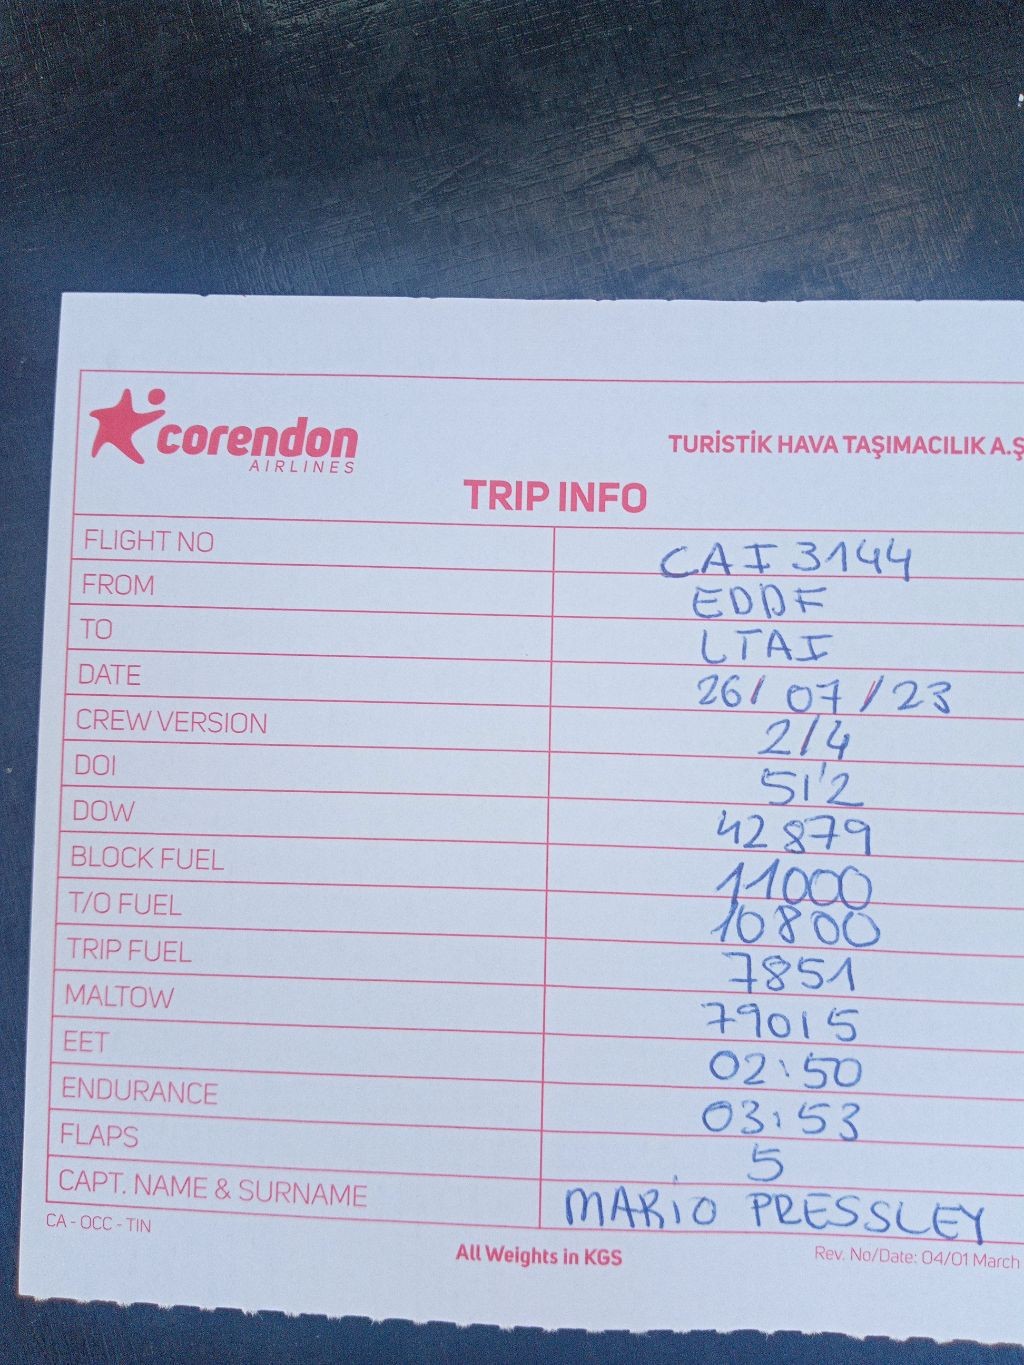 corendon
AIRLINES
TURİSTİK HAVA TAŞIMACILIK A.Ş
TRIP INFO
FLIGHT NO CAI 3144
FROM EDDF
TO LTAI
DATE 26/07/23
CREW VERSION 2/4
DOI 51'2
DOW 42879
BLOCK FUEL 11000
T/O FUEL 10800
TRIP FUEL 7851
MALTOW 79015
EET 02:50
ENDURANCE 03:53
FLAPS 5
CAPT. NAME & SURNAME MARiO PRESSLEY
CA - OCC - TIN
All Weights in KGS
Rev. No/Date: 04/01 March